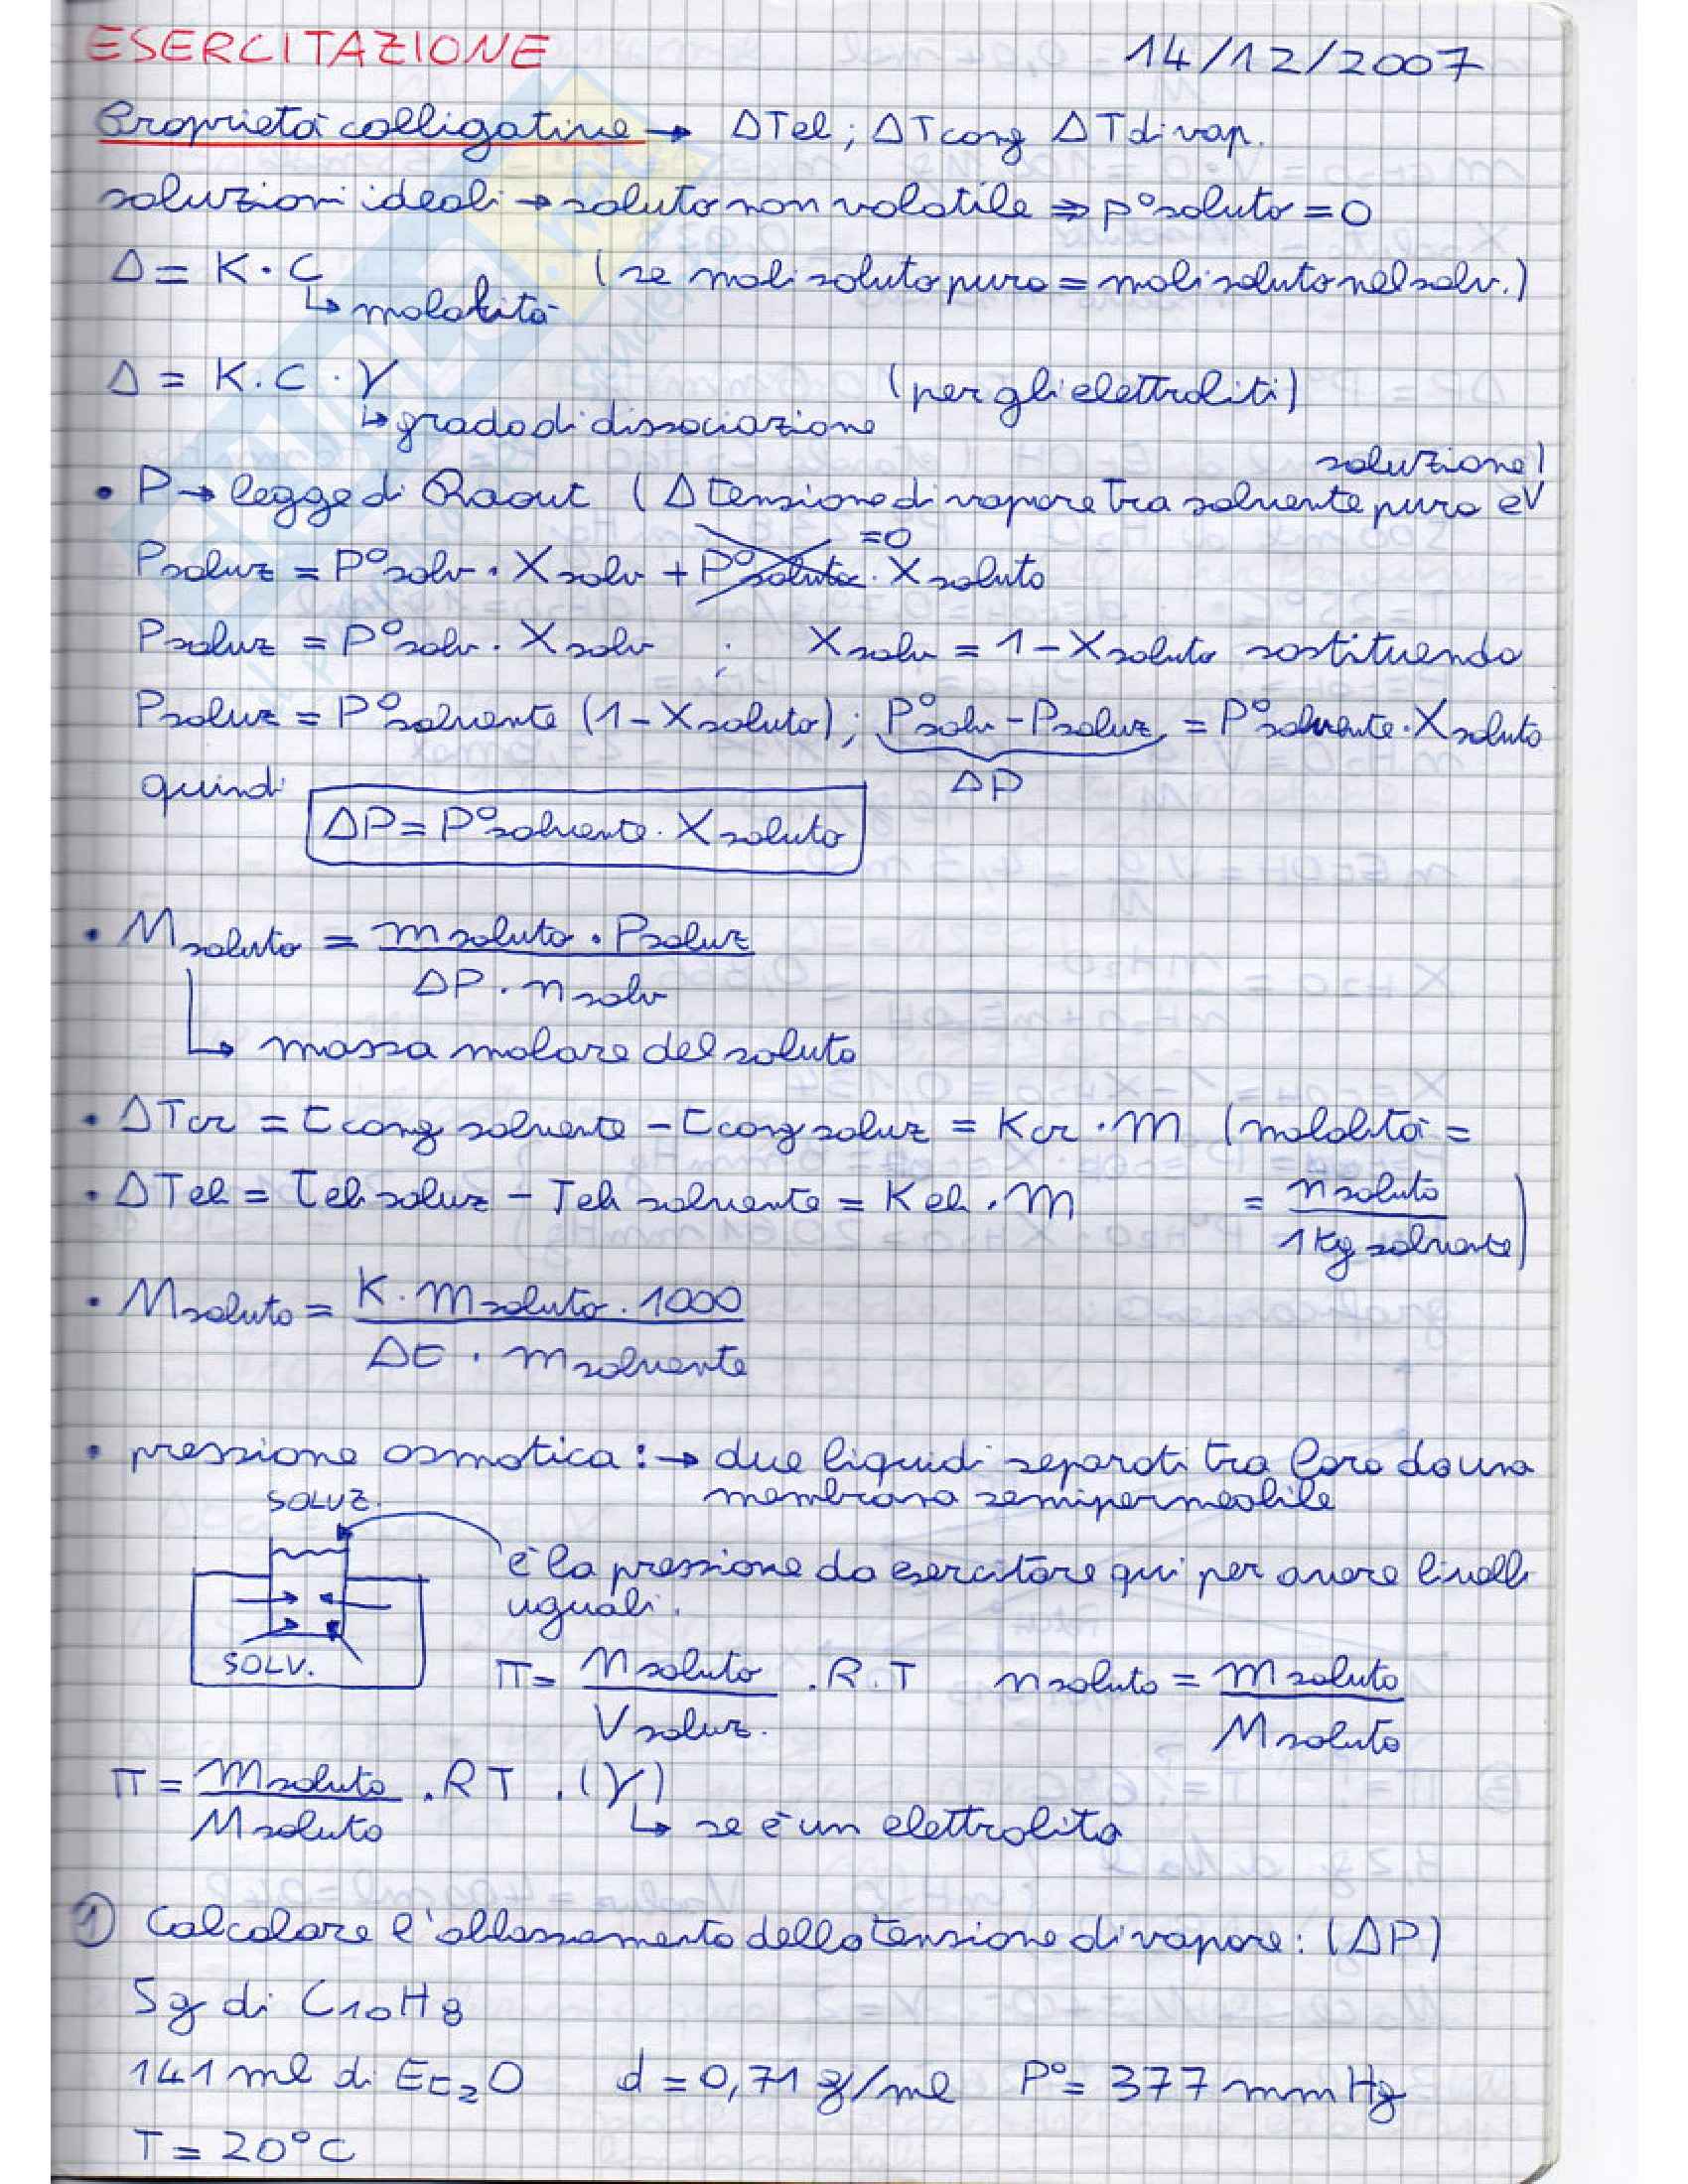 ESERCITAZIONE 14/12/2007
Proprietà colligative → ΔTel; ΔTcong ΔTdi vap.
soluzioni ideali → soluto non volatile ⇒ p°soluto = 0
Δ = K · C (se moli soluto puro = moli soluto nel solv.)
↳ molalità
Δ = K . C . γ (per gli elettroliti)
↳ grado di dissociazione
soluzione)
• P → legge di Raout (Δ tensione di vapore tra solvente puro e
=0
Psoluz = P°solv · Xsolv + P°soluto · Xsoluto
Psoluz = P°solv · Xsolv ; Xsolv = 1 - Xsoluto sostituendo
Psoluz = P°solvente (1 - Xsoluto); P°solv - Psoluz = P°solvente · Xsoluto
ΔP
quindi
ΔP = P°solvente · Xsoluto
• Msoluto = msoluto · Psoluz
ΔP · nsolv
↳ massa molare del soluto
• ΔTcr = tcong solvente - tcong soluz = Kcr · m (molalità =
• ΔTeb = Teb soluz - Teb solvente = Keb . m = nsoluto
1Kg solvente)
• Msoluto = K · msoluto · 1000
Δt · msolvente
• pressione osmotica: → due liquidi separati tra loro da una
membrana semipermeabile
SOLUZ.
è la pressione da esercitare qui per avere livelli
uguali.
SOLV.
π = nsoluto . R . T nsoluto = msoluto
Vsoluz. Msoluto
π = msoluto . RT . (γ)
Msoluto ↳ se è un elettrolita
① Calcolare l'abbassamento della tensione di vapore: (ΔP)
5g di C10H8
141 ml di Et2O d = 0,71 g/ml P° = 377 mmHg
T = 20°C